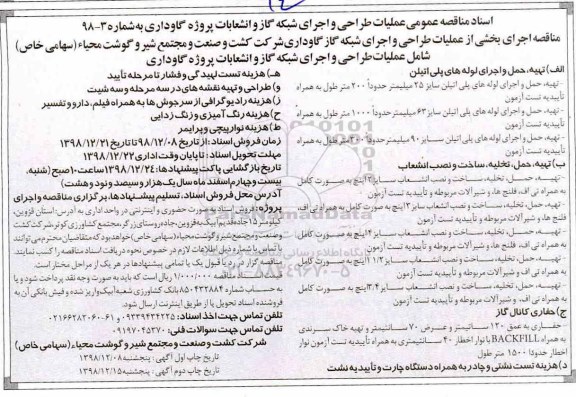 اسناد مناقصه عمومی عملیات طراحی و اجرای شبکه گاز و انشعابات پروژه گاوداری به شماره ۳-۹۸
مناقصه اجرای بخشی از عملیات طراحی و اجرای شبکه گاز گاوداری شرکت کشت و صنعت و مجتمع شیر و گوشت محیاء (سهامی خاص)
شامل عملیات طراحی و اجرای شبکه گاز و انشعابات پروژه گاوداری
الف) تهیه، حمل و اجرای لوله های پلی اتیلن
- تهیه، حمل و اجرای لوله های پلی اتیلن سایز ۲۵ میلیمتر حدوداً ۲۰۰ متر طول به همراه
تأییدیه تست آزمون
- تهیه، حمل و اجرای لوله های پلی اتیلن سایز ۶۳ میلیمتر حدوداً ۱۰۰۰ متر طول به همراه
تأییدیه تست آزمون
- تهیه، حمل و اجرای لوله های پلی اتیلن سایز ۹۰ میلیمتر حدوداً ۳۰۰ متر طول به همراه
تأییدیه تست آزمون
ب) تهیه، حمل، تخلیه، ساخت و نصب انشعاب
- تهیه، حمل، تخلیه، ساخت و نصب انشعاب سایز ۲ اینچ به صورت کامل
به همراه تی اف، فلنج ها، و شیرآلات مربوطه و تأییدیه تست آزمون
- تهیه، حمل، تخلیه، ساخت و نصب انشعاب سایز ۲ اینچ به صورت کامل به همراه تی اف،
فلنج ها، و شیرآلات مربوطه و تأییدیه تست آزمون
- تهیه، حمل، تخلیه، ساخت و نصب انشعاب سایز ۴ اینچ به صورت کامل
به همراه تی اف، فلنج ها، و شیرآلات مربوطه و تأییدیه تست آزمون
- تهیه، حمل، تخلیه، ساخت و نصب انشعاب سایز ۱/۲ ۱ اینچ به صورت کامل
به همراه تی اف، و شیرآلات مربوطه و تأییدیه تست آزمون
- تهیه، حمل، تخلیه، ساخت و نصب انشعاب سایز ۳/۴ اینچ به صورت کامل به همراه
تی اف، و شیرآلات مربوطه و تأییدیه تست آزمون
ج) حفاری کانال گاز
حفاری به عمق ۱۲۰ سانتیمتر و عرض ۷۰ سانتیمتر و تهیه خاک سرندی
به همراه BACKFILL با نوار اخطار ۴۰ سانتیمتری به همراه تأییدیه تست آزمون نوار
اخطار حدودا ۱۵۰۰ متر طول
د) هزینه تست نشتی و چادر به همراه دستگاه چارت و تأییدیه نشت
هـ) هزینه تست لهیدگی و فشار تا مرحله تأیید
و) طراحی و تهیه نقشه های در سه مرحله و سه شیت
ز) هزینه رادیوگرافی از سرجوش ها به همراه فیلم، دارو و تفسیر
ح) هزینه رنگ آمیزی و زنگ زدایی
ط) هزینه نوارپیچی و پرایمر
زمان فروش اسناد: از تاریخ ۹۸/۱۲/۰۸ تا تاریخ ۱۳۹۸/۱۲/۲۱
مهلت تحویل اسناد: تا پایان وقت اداری ۱۳۹۸/۱۲/۲۲
تاریخ بازگشایی پاکت پیشنهادها: ۱۳۹۸/۱۲/۲۴ ساعت ۱۰ صبح (شنبه،
بیست و چهارم اسفند ماه سال یک هزار و سیصد و نود و هشت)
آدرس محل فروش اسناد، تسلیم پیشنهادها، برگزاری مناقصه و اجرای
پروژه: فروش اسناد به صورت حضوری و اینترنتی در واحد اداری به آدرس: استان قزوین،
کیلومتر ۱۵ جاده قدیم آبیک به قزوین، جاده روستای زرگر، مجتمع کشاورزی کوثر، شرکت کشت
و صنعت و مجتمع شیر و گوشت محیاء (سهامی خاص) خواهد بود که متقاضیان محترم می توانند
با تماس با شماره ذیل اطلاعات لازم در خصوص نحوه دریافت اسناد مناقصه را کسب نمایند.
مناقصه گزار در رد یا قبول یک یا تمامی پیشنهادها در هر یک از مراحل مختار است.
مبلغ فروش اسناد ۱/۰۰۰/۰۰۰ ریال است که باید به صورت وجه نقد پرداخت شود و یا
به حساب شماره ۸۵۰۴۳۲۸۸۴ بانک کشاورزی شعبه آبیک واریز شده و فیش بانکی آن به
فروشنده اسناد تحویل یا از طریق اینترنت ارسال شود.
تلفن تماس جهت اخذ اسناد: ۰۹۳۳۹۴۳۴۲۲۵ و ۶۱-۰۲۱۶۶۲۸۳۰۶۰
تلفن تماس جهت سوالات فنی: ۰۹۱۹۷۰۴۵۳۷۰
شرکت کشت و صنعت و مجتمع شیر و گوشت محیاء (سهامی خاص)
تاریخ چاپ اول آگهی: پنجشنبه ۱۳۹۸/۱۲/۰۸
تاریخ چاپ دوم آگهی: پنجشنبه ۱۳۹۸/۱۲/۱۵